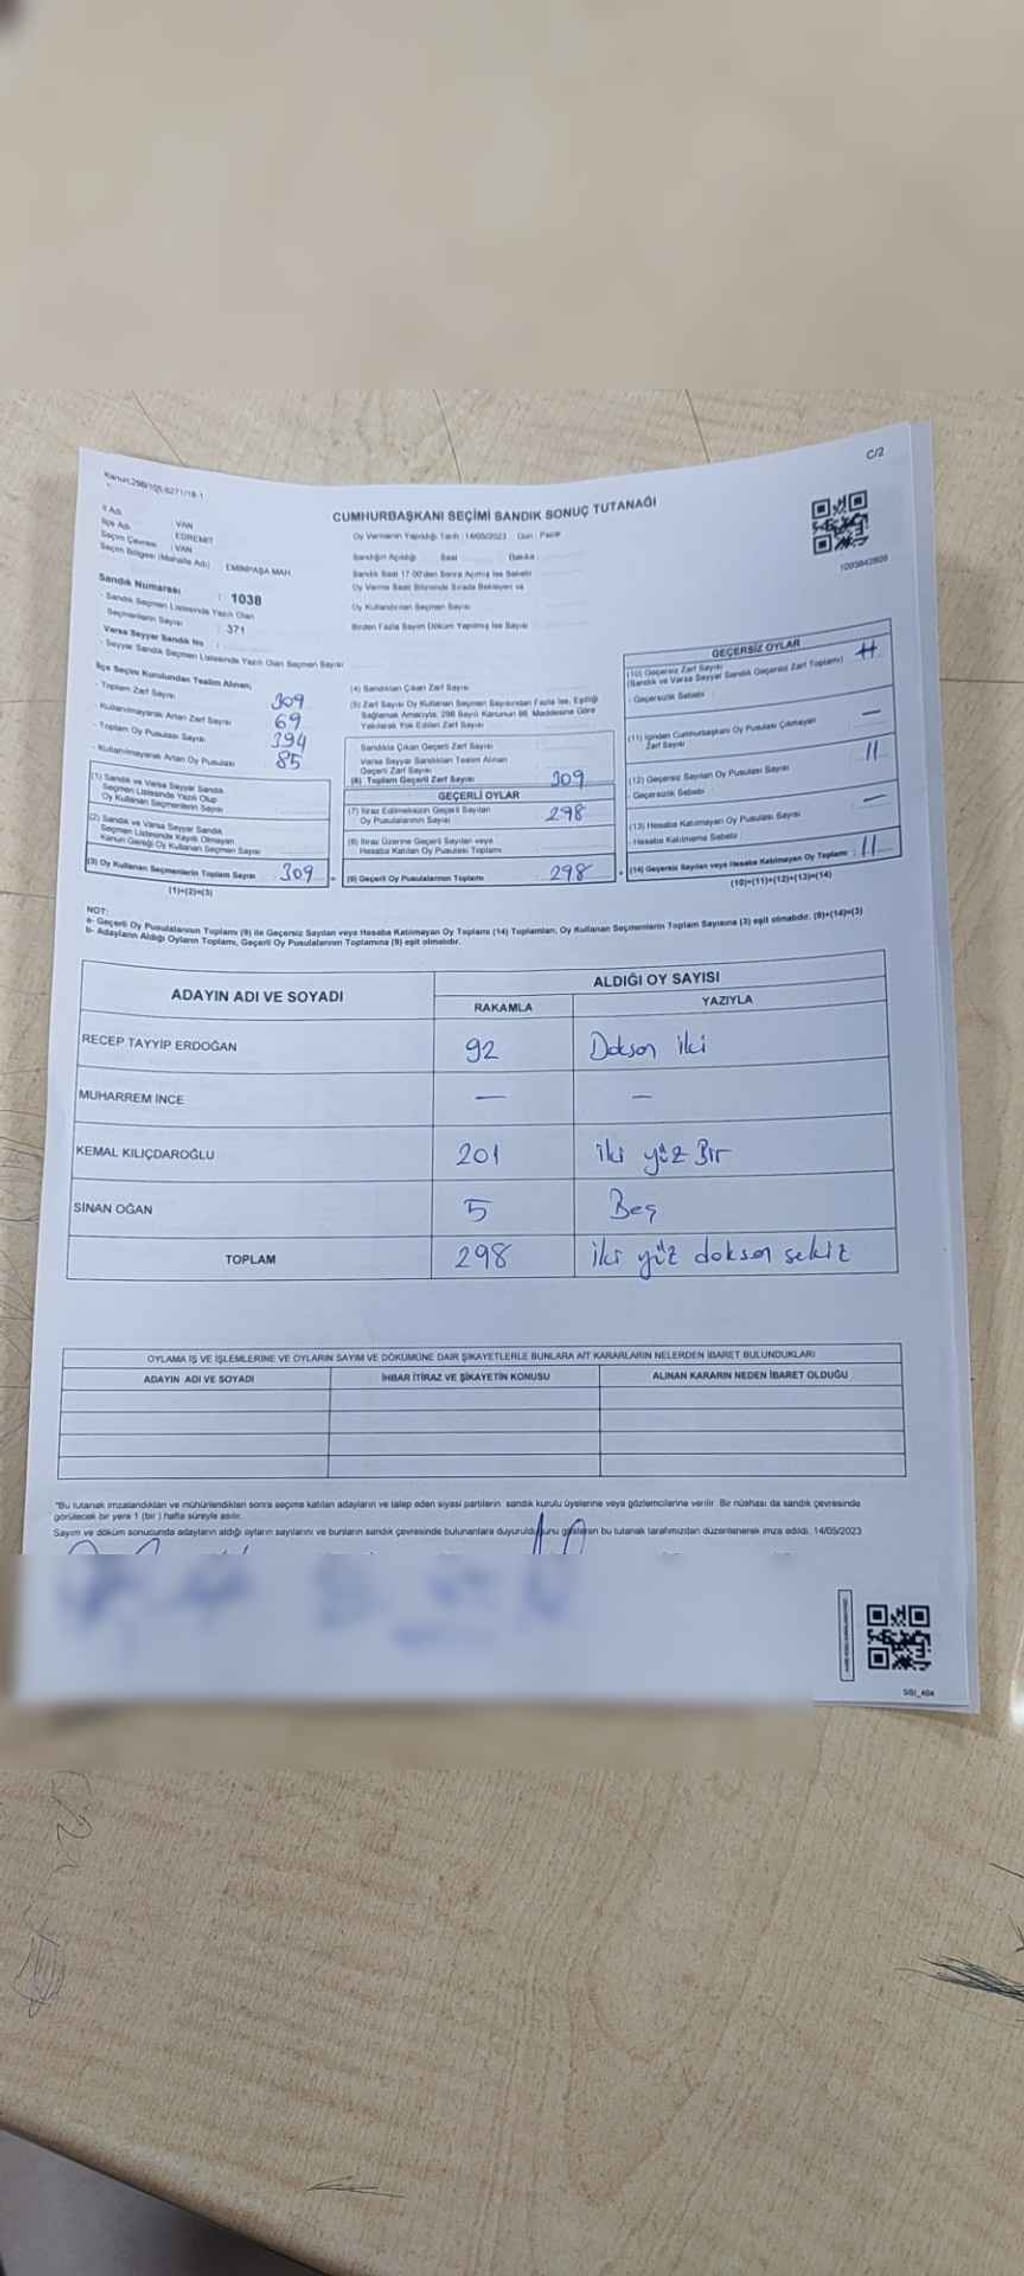 C/2
Kanun:298/105-6271/18-1
CUMHURBAŞKANI SEÇİMİ SANDIK SONUÇ TUTANAĞI
İl Adı : VAN
İlçe Adı : EDREMİT
Seçim Çevresi : VAN
Seçim Bölgesi (Mahalle Adı) EMİNPAŞA MAH.
Sandık Numarası : 1038
- Sandık Seçmen Listesinde Yazılı Olan
Seçmenlerin Sayısı : 371
Varsa Seyyar Sandık No :
- Seyyar Sandık Seçmen Listesinde Yazılı Olan Seçmen Sayısı
Oy Vermenin Yapıldığı Tarih : 14/05/2023 Gün : Pazar
Sandığın Açıldığı Saat Dakika
Sandık Saat 17.00'den Sonra Açılmış İse Sebebi
Oy Verme Saati Bitiminde Sırada Bekleyen ve
Oy Kullandırılan Seçmen Sayısı
Birden Fazla Sayım Döküm Yapılmış İse Sayısı
İlçe Seçim Kurulundan Teslim Alınan;
- Toplam Zarf Sayısı 309
- Kullanılmayarak Artan Zarf Sayısı 69
- Toplam Oy Pusulası Sayısı 394
- Kullanılmayarak Artan Oy Pusulası 85
(1) Sandık ve Varsa Seyyar Sandık
Seçmen Listesinde Yazılı Olup
Oy Kullanan Seçmenlerin Sayısı
(2) Sandık ve Varsa Seyyar Sandık
Seçmen Listesinde Kayıtlı Olmayan
Kanun Gereği Oy Kullanan Seçmen Sayısı
(3) Oy Kullanan Seçmenlerin Toplam Sayısı 309
(1)+(2)=(3)
(4) Sandıktan Çıkan Zarf Sayısı
(5) Zarf Sayısı Oy Kullanan Seçmen Sayısından Fazla İse, Eşitliği
Sağlamak Amacıyla, 298 Sayılı Kanunun 98. Maddesine Göre
Yakılarak Yok Edilen Zarf Sayısı
Sandıkta Çıkan Geçerli Zarf Sayısı
Varsa Seyyar Sandıktan Teslim Alınan
Geçerli Zarf Sayısı
(6) Toplam Geçerli Zarf Sayısı 309
GEÇERLİ OYLAR
(7) İtiraz Edilmeksizin Geçerli Sayılan
Oy Pusulalarının Sayısı 298
(8) İtiraz Üzerine Geçerli Sayılan veya
Hesaba Katılan Oy Pusulası Toplamı
(9) Geçerli Oy Pusulalarının Toplamı 298
1093842809
GEÇERSİZ OYLAR
(10) Geçersiz Zarf Sayısı
(Sandık ve Varsa Seyyar Sandık Geçersiz Zarf Toplamı)
- Geçersizlik Sebebi
(11) İçinden Cumhurbaşkanı Oy Pusulası Çıkmayan
Zarf Sayısı —
(12) Geçersiz Sayılan Oy Pusulası Sayısı 11
- Geçersizlik Sebebi
(13) Hesaba Katılmayan Oy Pusulası Sayısı —
- Hesaba Katılmama Sebebi
(14) Geçersiz Sayılan veya Hesaba Katılmayan Oy Toplamı : 11
(10)+(11)+(12)+(13)=(14)
NOT:
a- Geçerli Oy Pusulalarının Toplamı (9) ile Geçersiz Sayılan veya Hesaba Katılmayan Oy Toplamı (14) Toplamları, Oy Kullanan Seçmenlerin Toplam Sayısına (3) eşit olmalıdır. (9)+(14)=(3)
b- Adayların Aldığı Oyların Toplamı, Geçerli Oy Pusulalarının Toplamına (9) eşit olmalıdır.
ADAYIN ADI VE SOYADI
ALDIĞI OY SAYISI
RAKAMLA YAZIYLA
RECEP TAYYİP ERDOĞAN 92 Doksan iki
MUHARREM İNCE — —
KEMAL KILIÇDAROĞLU 201 iki yüz Bir
SİNAN OĞAN 5 Beş
TOPLAM 298 iki yüz doksan sekiz
OYLAMA İŞ VE İŞLEMLERİNE VE OYLARIN SAYIM VE DÖKÜMÜNE DAİR ŞİKAYETLERLE BUNLARA AİT KARARLARIN NELERDEN İBARET BULUNDUKLARI
ADAYIN ADI VE SOYADI İHBAR İTİRAZ VE ŞİKAYETİN KONUSU ALINAN KARARIN NEDEN İBARET OLDUĞU
*Bu tutanak imzalandıktan ve mühürlendikten sonra seçime katılan adayların ve talep eden siyasi partilerin sandık kurulu üyelerine veya gözlemcilerine verilir. Bir nüshası da sandık çevresinde
görülecek bir yere 1 (bir ) hafta süreyle asılır.
Sayım ve döküm sonucunda adayların aldığı oyların sayılarını ve bunların sandık çevresinde bulunanlara duyurulduğunu gösteren bu tutanak tarafımızdan düzenlenerek imza edildi. 14/05/2023